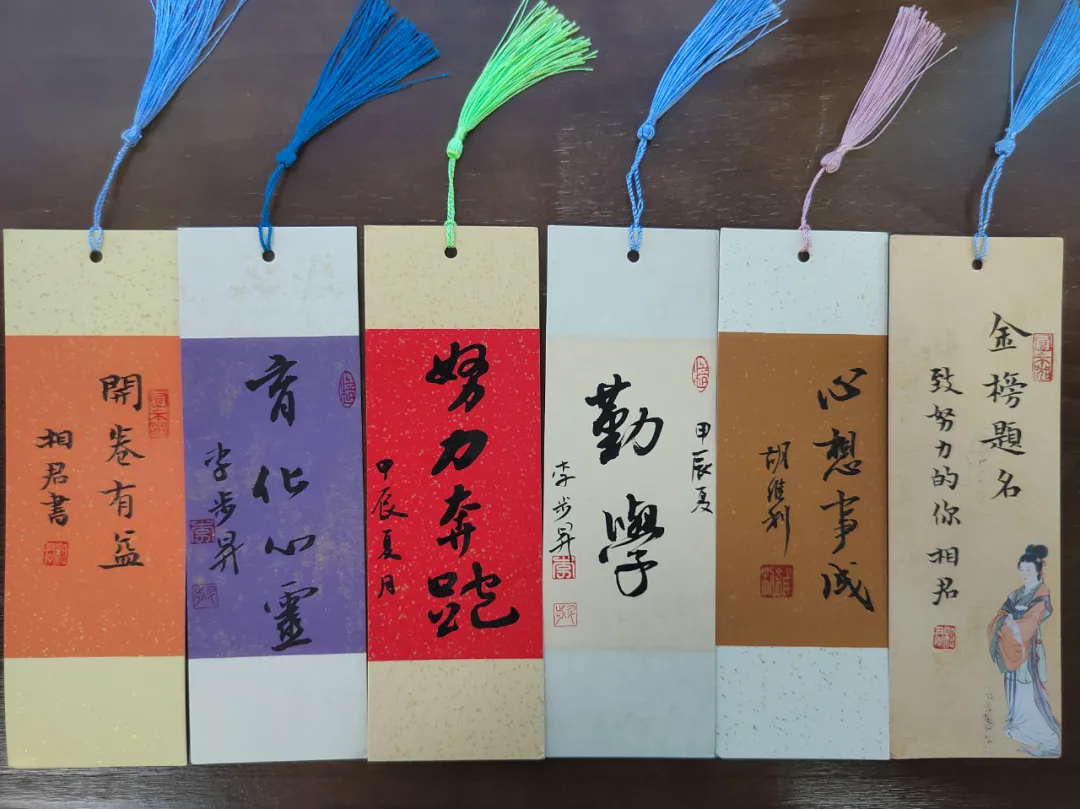 開卷有益
相君書
育化心靈
李步昇
努力奔跑
甲辰夏月
甲辰夏
勤學
李步昇
心想事成
胡維利
金榜題名
致努力的你 相君